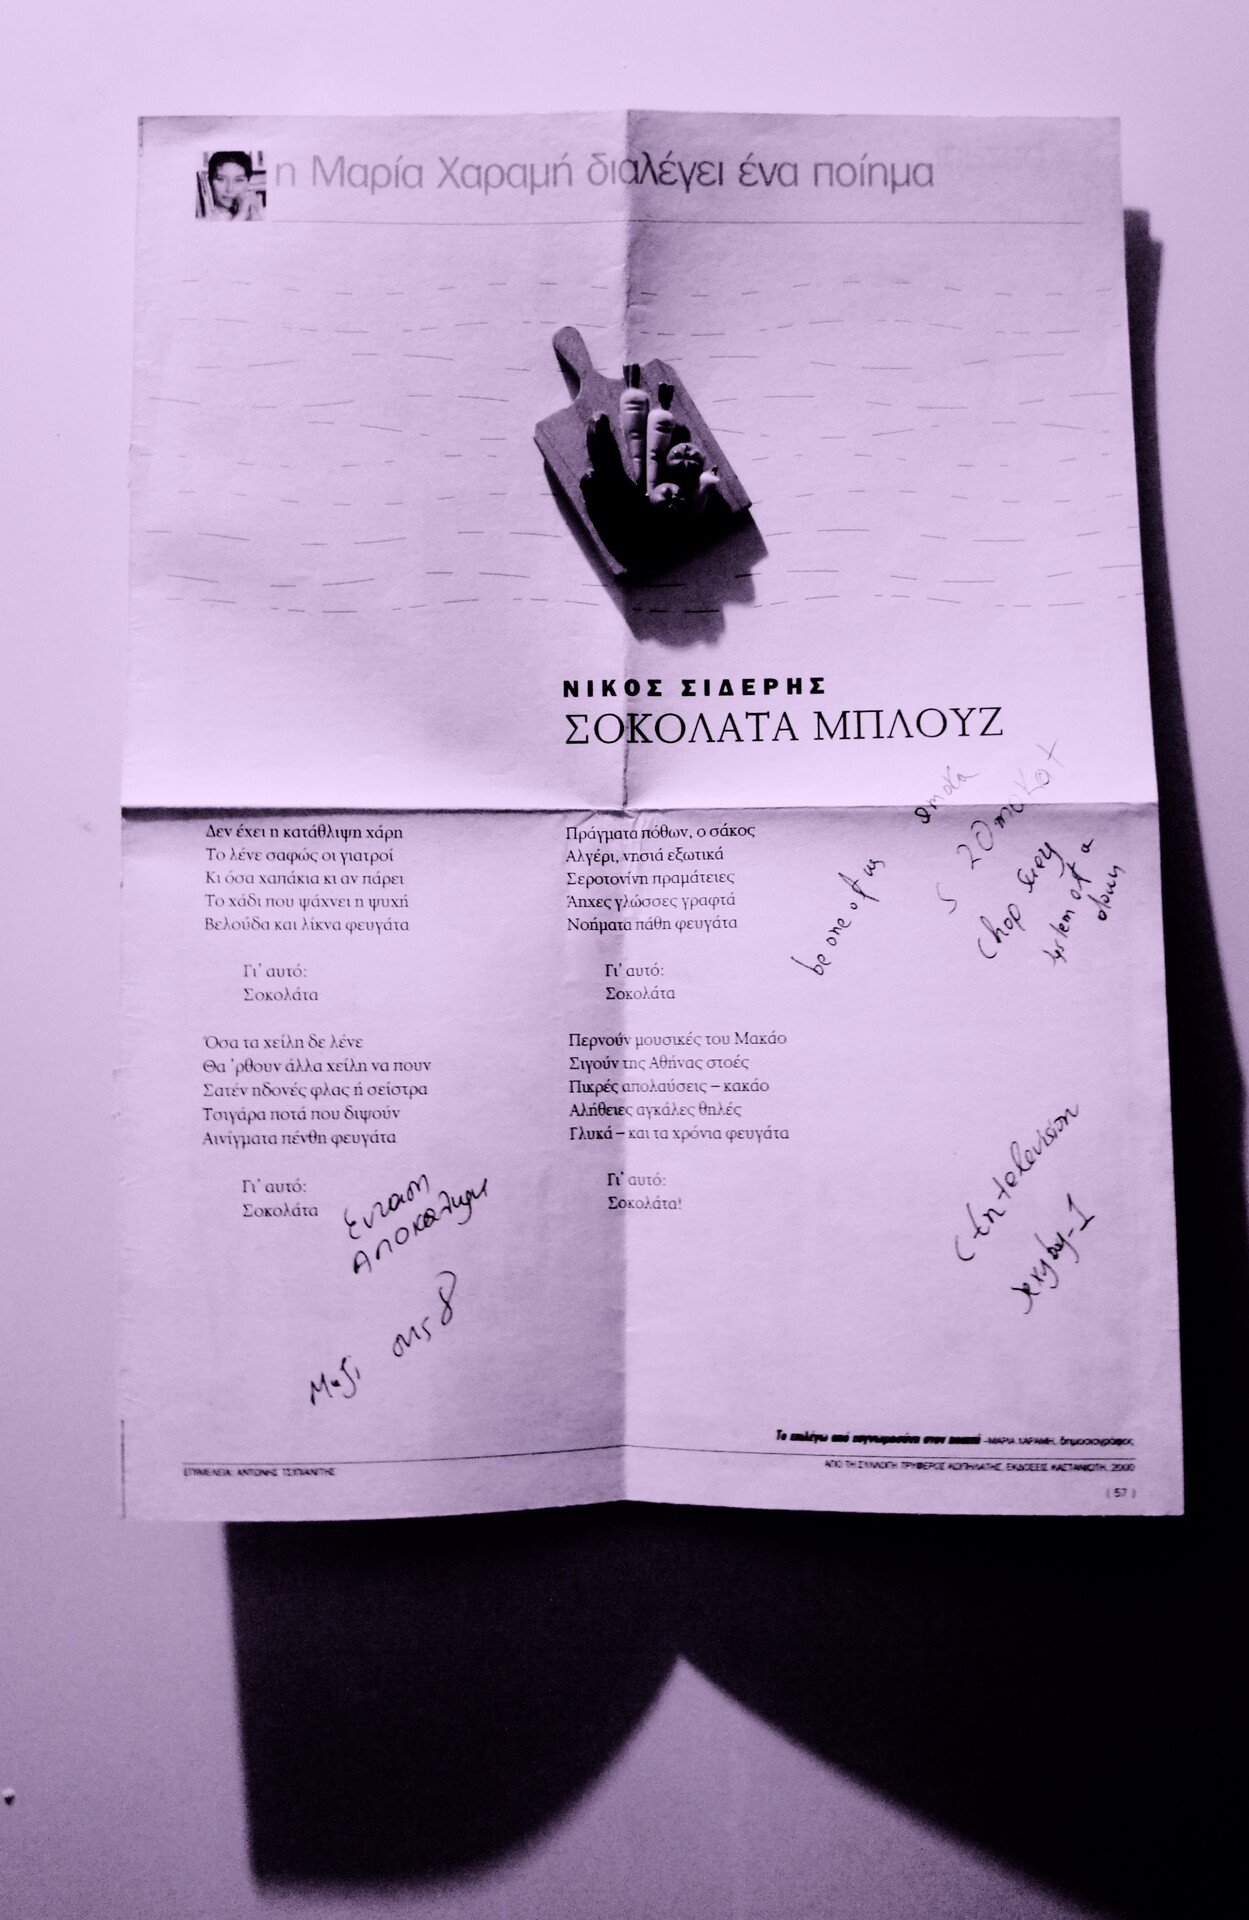 η Μαρία Χαραμή διαλέγει ένα ποίημα
ΝΙΚΟΣ ΣΙΔΕΡΗΣ
ΣΟΚΟΛΑΤΑ ΜΠΛΟΥΖ
Δεν έχει η κατάθλιψη χάρη
Το λένε σαφώς οι γιατροί
Κι όσα χαπάκια κι αν πάρει
Το χάδι που ψάχνει η ψυχή
Βελούδα και λίκνα φευγάτα
Γι' αυτό:
Σοκολάτα
Όσα τα χείλη δε λένε
Θα 'ρθουν άλλα χείλη να πουν
Σατέν ηδονές φλας ή σείστρα
Τσιγάρα ποτά που διψούν
Αινίγματα πένθη φευγάτα
Γι' αυτό:
Σοκολάτα
Πράγματα πόθων, ο σάκος
Αλγέρι, νησιά εξωτικά
Σεροτονίνη πραμάτειες
Άηχες γλώσσες γραφτά
Νοήματα πάθη φευγάτα
Γι' αυτό:
Σοκολάτα
Περνούν μουσικές του Μακάο
Σιγούν της Αθήνας στοές
Πικρές απολαύσεις – κακάο
Αλήθειες αγκάλες θηλές
Γλυκά – και τα χρόνια φευγάτα
Γι' αυτό:
Σοκολάτα!
be one of us
chop suey
system of a
down
television
sexyboy-1
Ενταση
Μαζί στις 8
Το επιλέγω από ευγνωμοσύνη στον ποιητή -ΜΑΡΙΑ ΧΑΡΑΜΗ, δημοσιογράφος
ΕΠΙΜΕΛΕΙΑ: ΑΝΤΩΝΗΣ
ΑΠΟ ΤΗ ΣΥΛΛΟΓΗ ΤΡΥΦΕΡΟΣ ΚΩΠΗΛΑΤΗΣ, ΕΚΔΟΣΕΙΣ ΚΑΣΤΑΝΙΩΤΗ, 2000
( 57 )